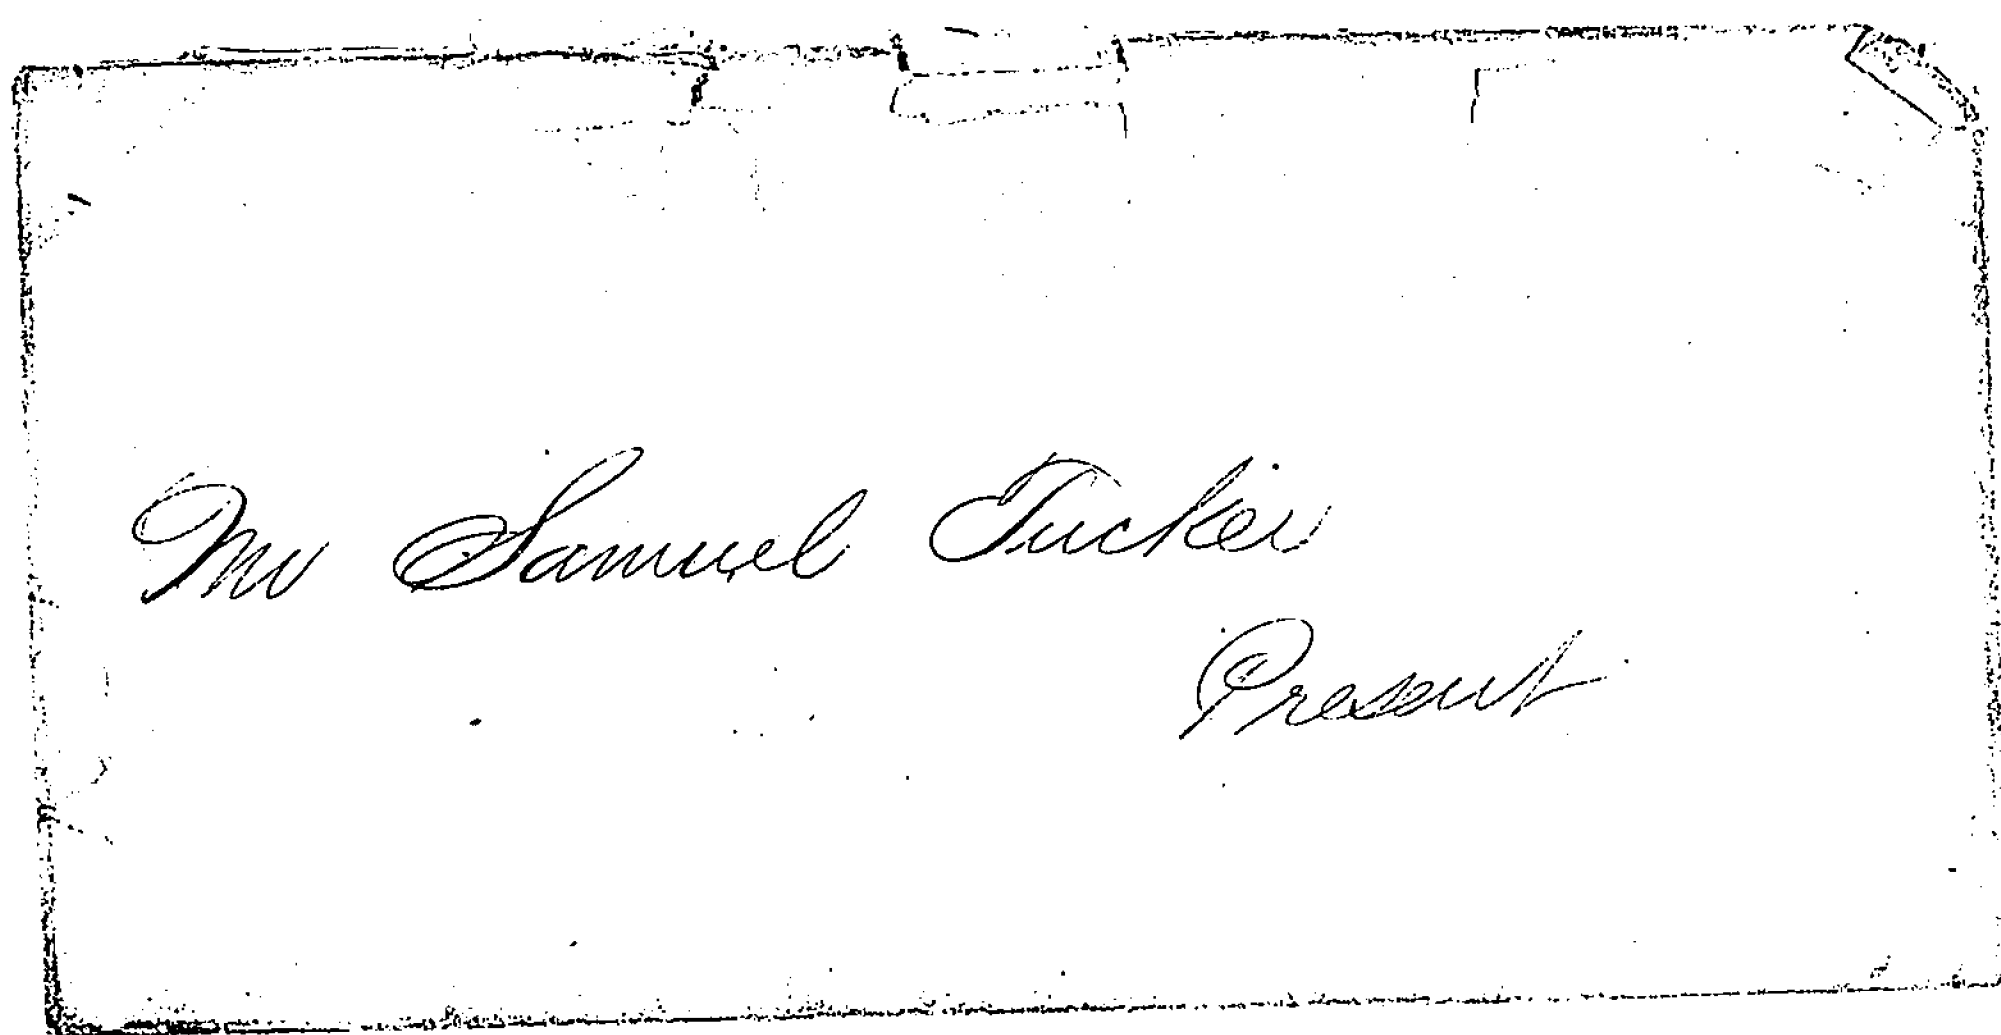 Mr Samuel Tucker
Present